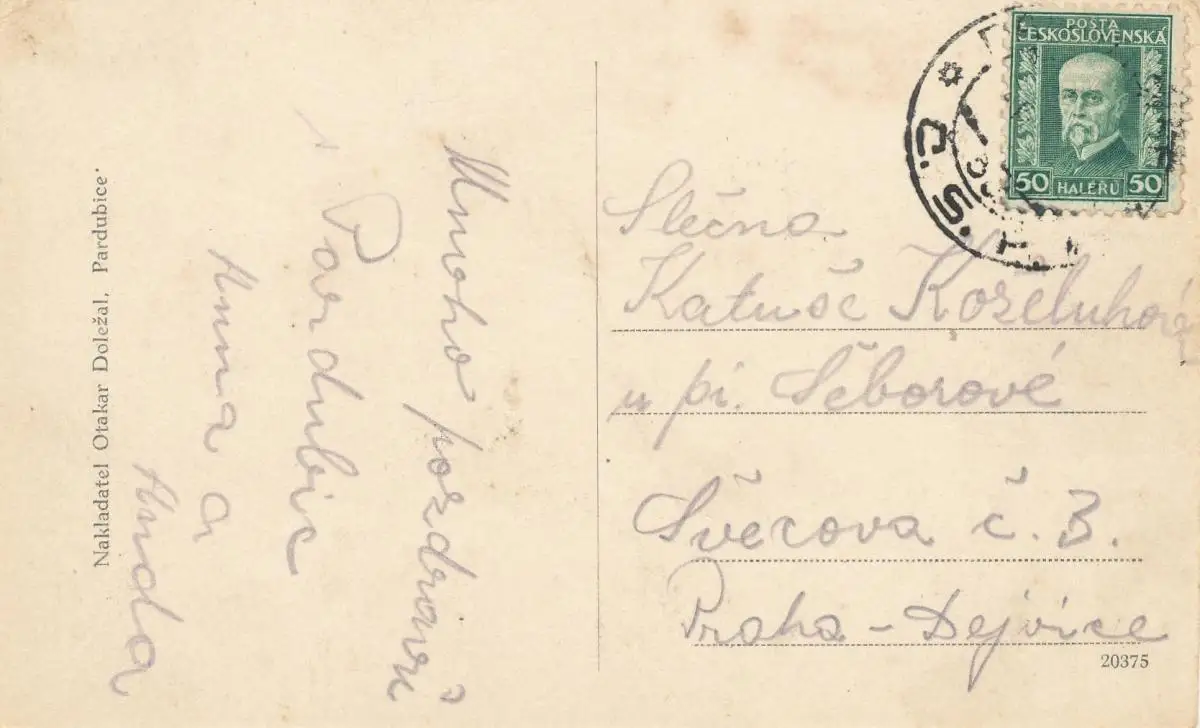 Nakladatel Otakar Doležal, Pardubice.
Mnoho pozdravů
z Pardubic
Anna a
Anda
POŠTA
ČESKOSLOVENSKÁ
50 HALÉŘŮ 50
Č.S.
Slečna
Katuše Koželuhová
u pí. Šéborové
Švecova č. 3.
Praha - Dejvice
20375